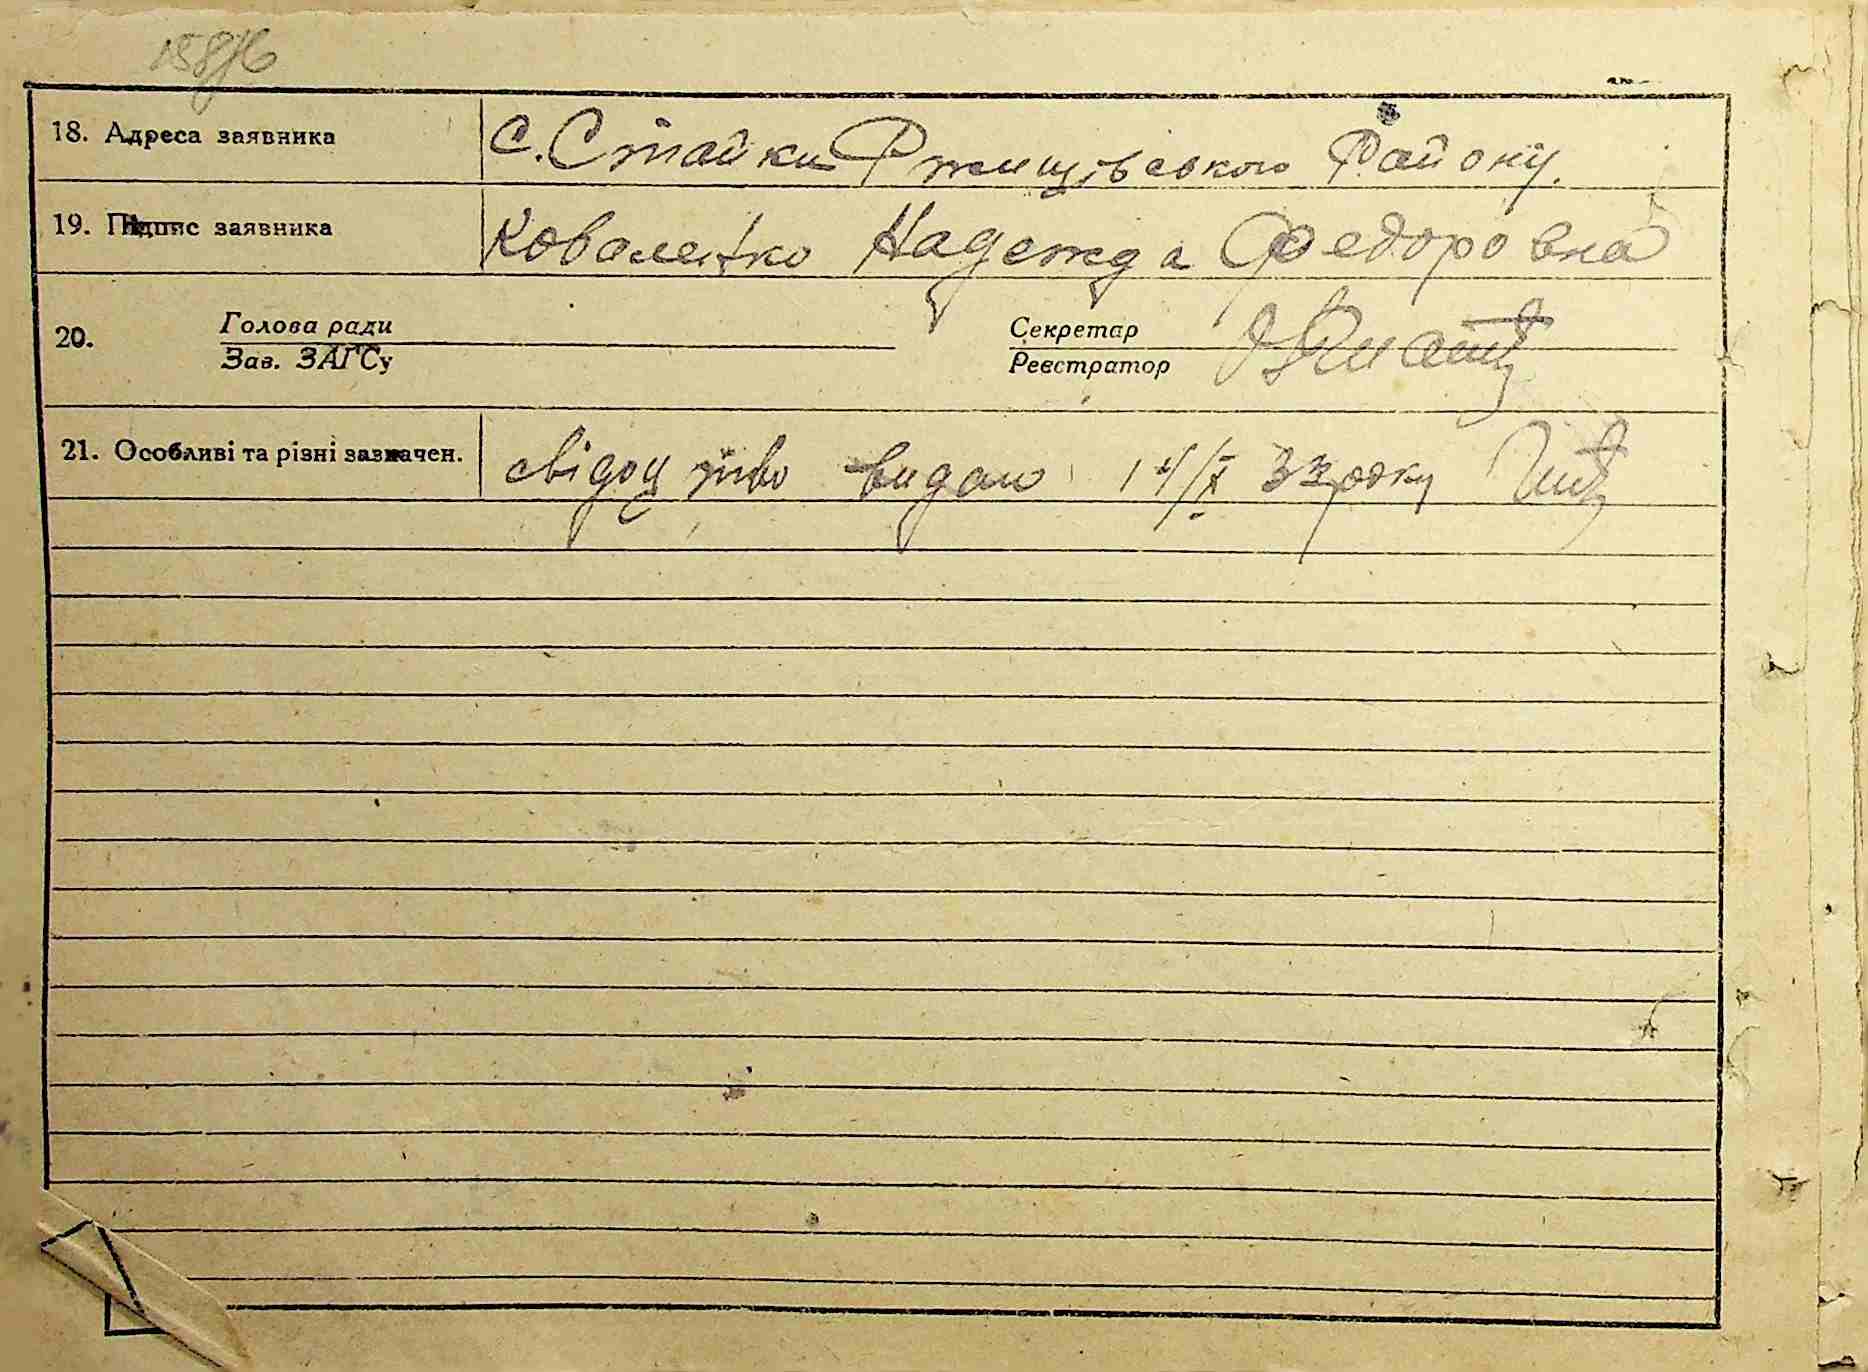 158
18. Адреса заявника с. Стайки Ржищівського Району.
19. Підпис заявника Коваленко Надежда Федоровна
20. Голова ради Секретар
Зав. ЗАГСу Реєстратор
21. Особливі та різні зазначен. свідоцтво видано 14/X 33 року